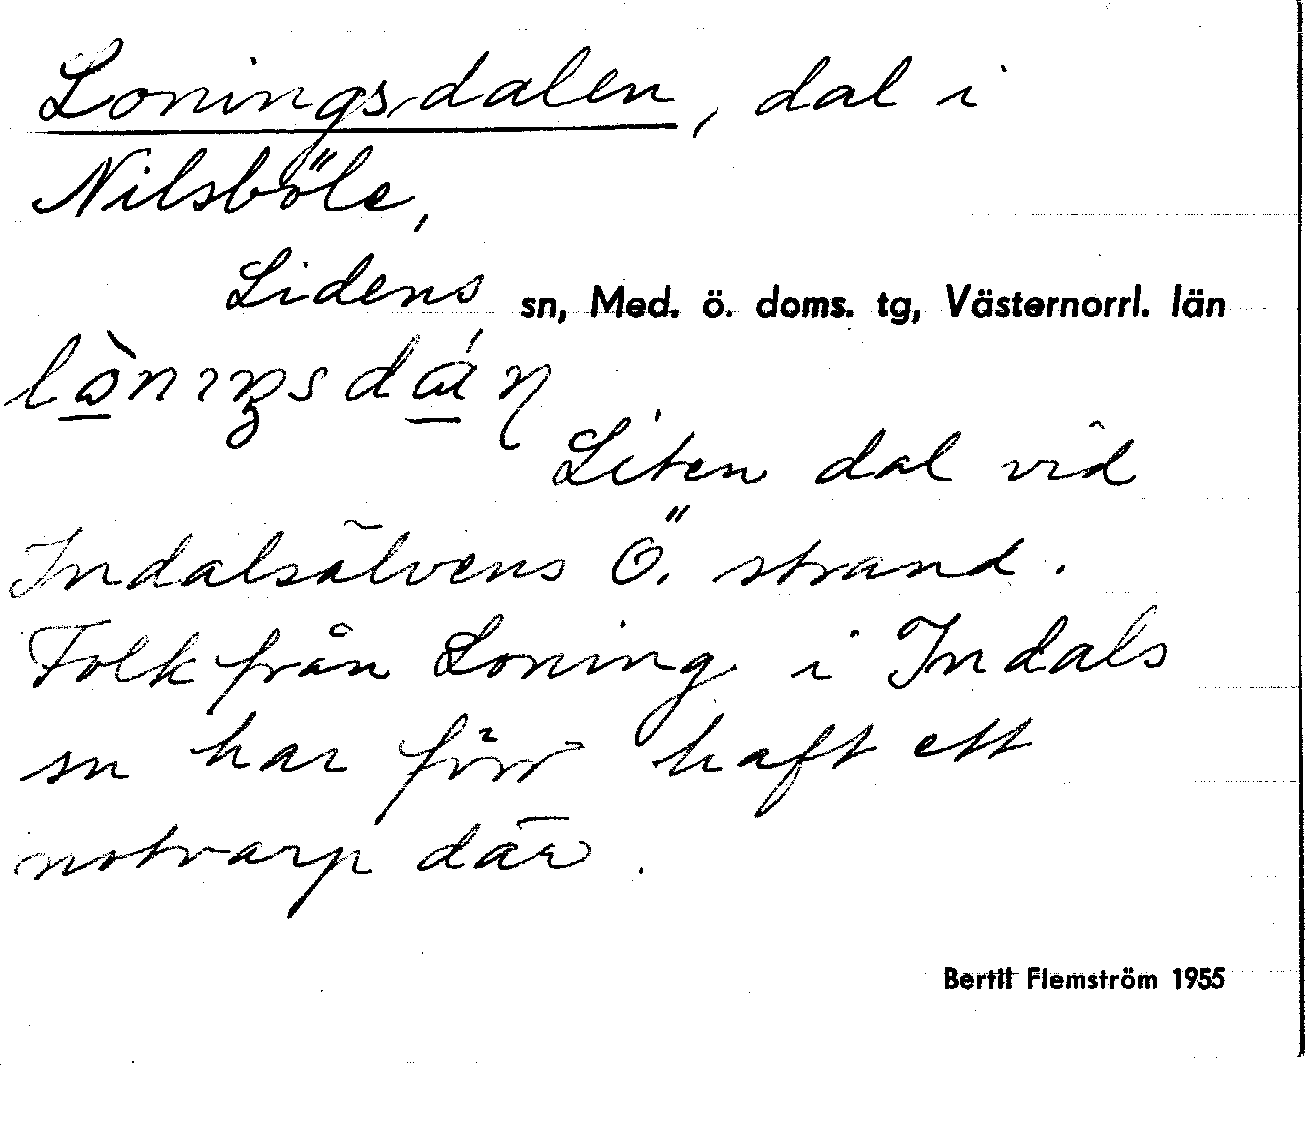 Loningsdalen, dal i
Nilsböle,
Lidens sn, Med. ö. doms. tg, Västernorrl. län
Liten dal vid
Indalsälvens Ö. strand.
Folk från Loning i Indals
sn har förr haft ett
notvarp där.
Bertil Flemström 1955